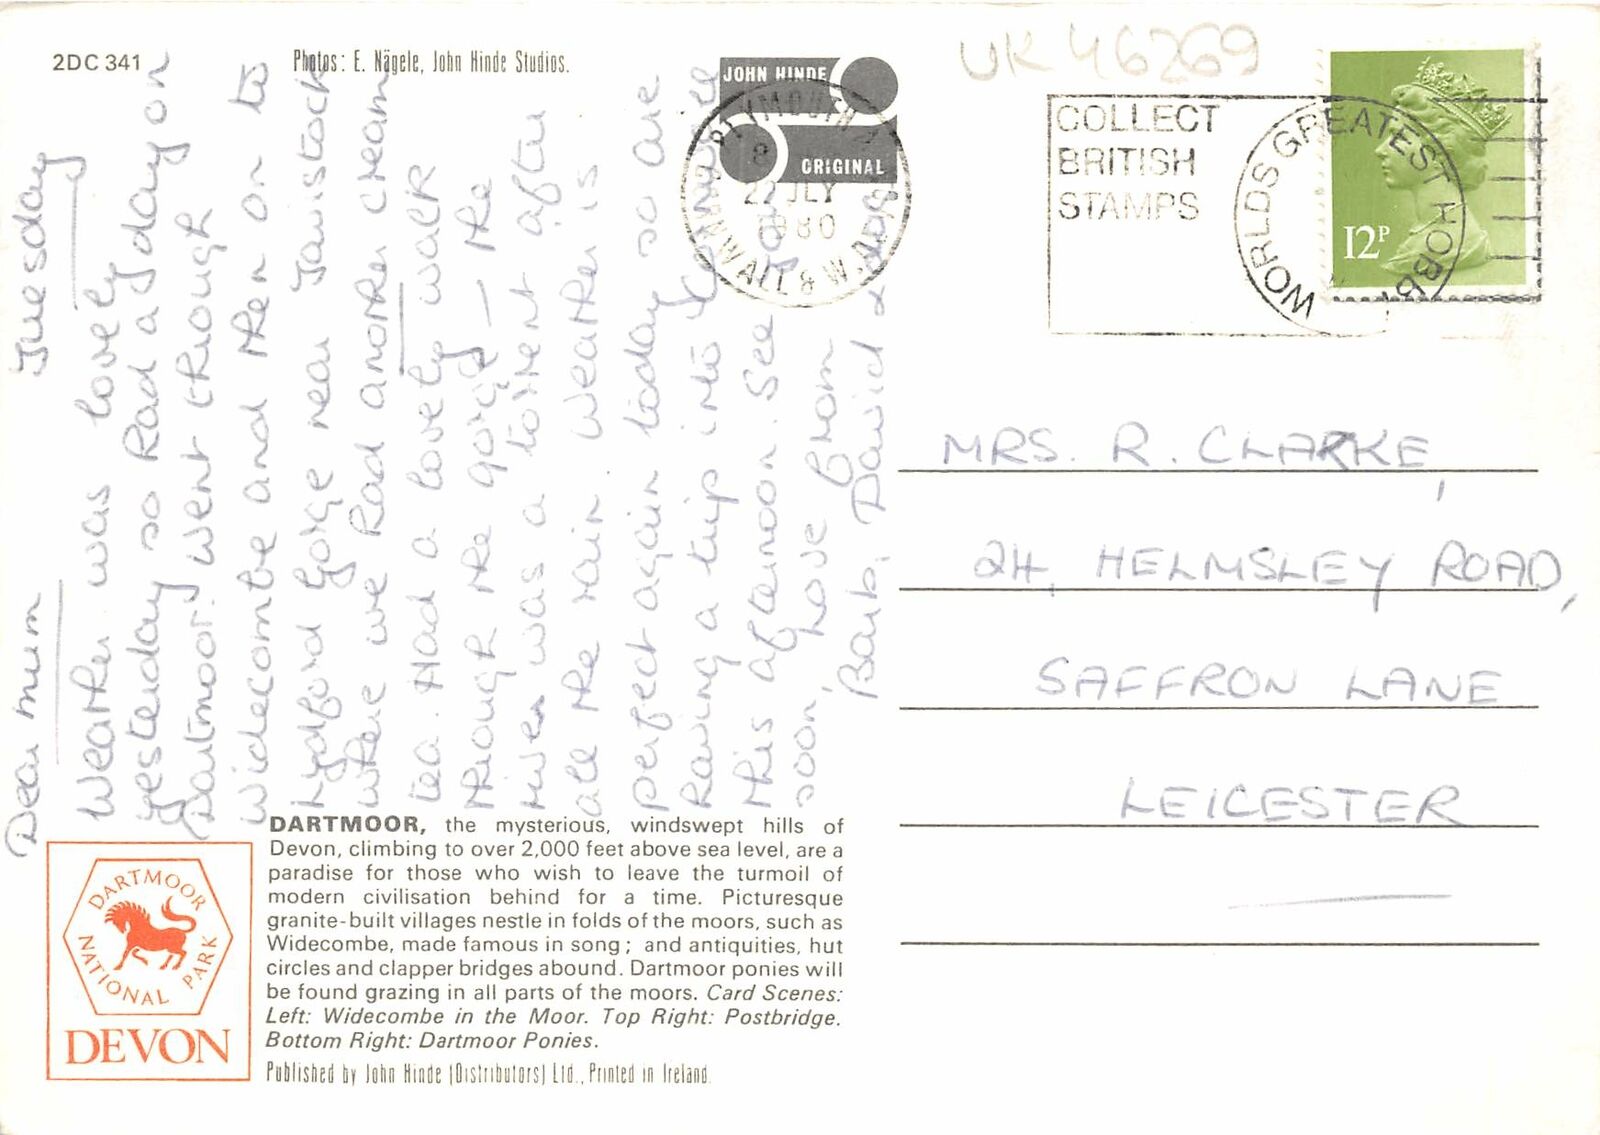 2DC 341
Photos: E. Nägele, John Hinde Studios.
JOHN HINDE
ORIGINAL
PLYMOUTH
22 JLY
1980
CORNWALL & W.
UK 46269
COLLECT
BRITISH
STAMPS
WORLDS GREATEST HOBBY
12P
Tuesday
Dear mum
Weather was lovely
yesterday so had a day on
Dartmoor. Went through
Widecombe and then on to
Lydford Gorge near Tavistock
where we had another cream
tea. Had a lovely walk
through the gorge - the
river was a torrent after
all the rain. Weather is
perfect again today so are
having a trip into
this afternoon. See you
soon, Love from
Barb, David &
MRS. R. CLARKE,
24, HELMSLEY ROAD,
SAFFRON LANE
LEICESTER
DARTMOOR NATIONAL PARK
DEVON
DARTMOOR, the mysterious, windswept hills of
Devon, climbing to over 2,000 feet above sea level, are a
paradise for those who wish to leave the turmoil of
modern civilisation behind for a time. Picturesque
granite-built villages nestle in folds of the moors, such as
Widecombe, made famous in song; and antiquities, hut
circles and clapper bridges abound. Dartmoor ponies will
be found grazing in all parts of the moors. Card Scenes:
Left: Widecombe in the Moor. Top Right: Postbridge.
Bottom Right: Dartmoor Ponies.
Published by John Hinde (Distributors) Ltd., Printed in Ireland.